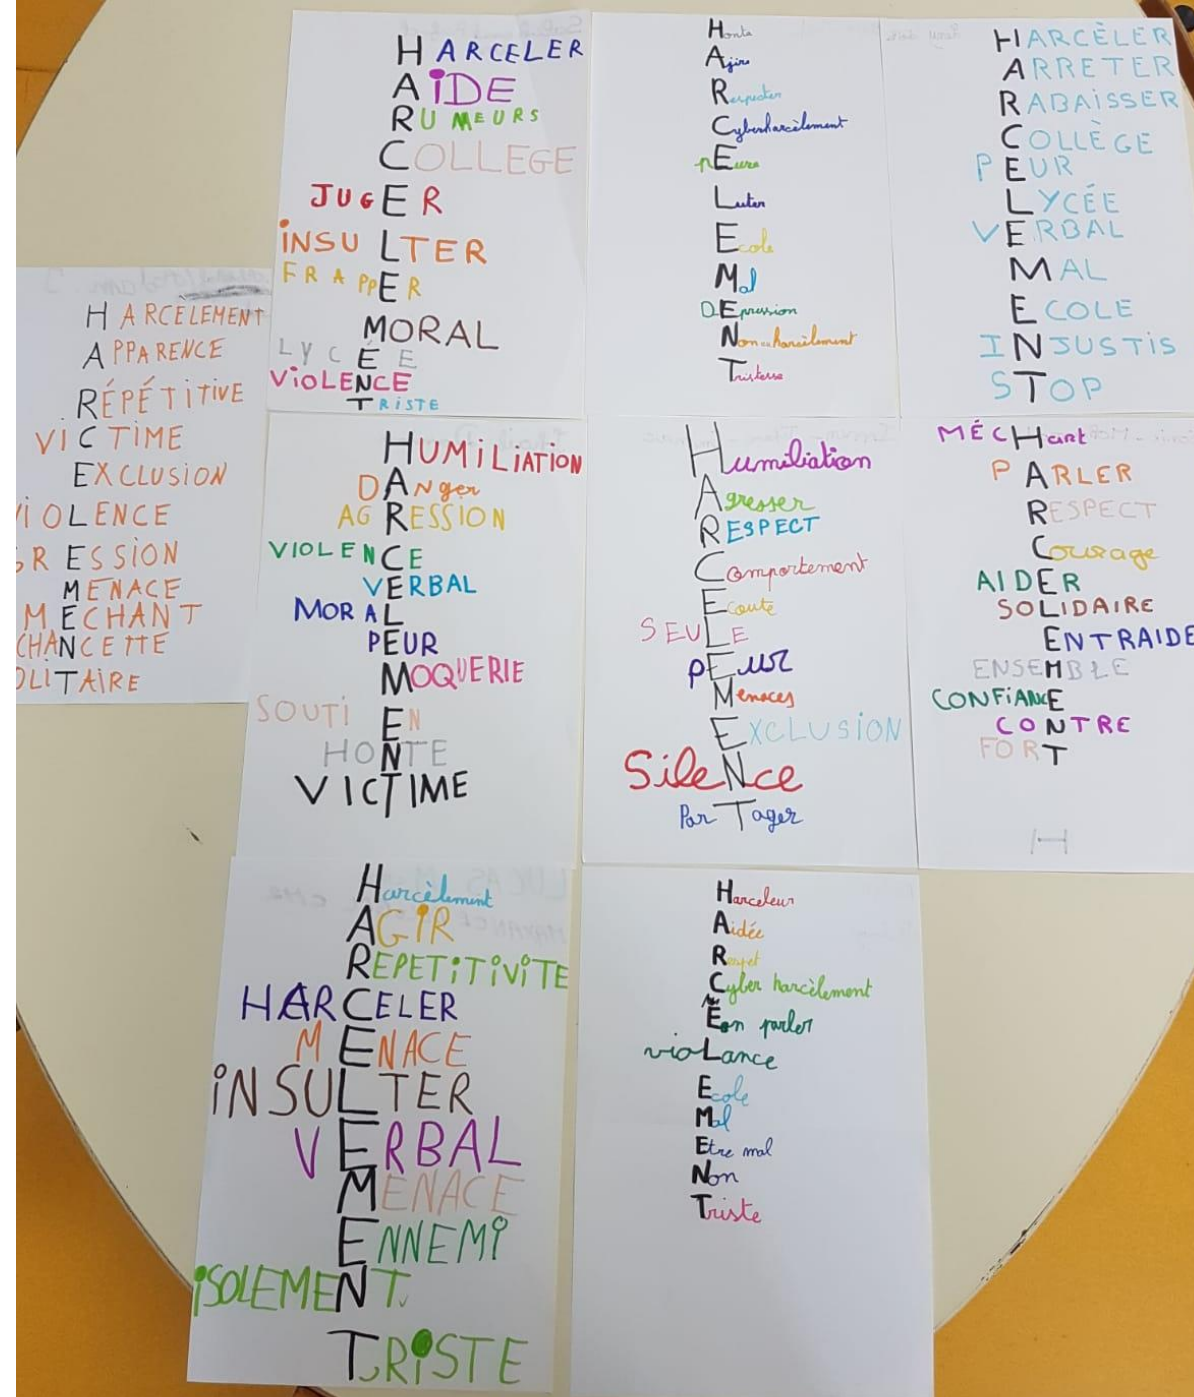 HARCELER
AiDE
RUMEURS
COLLEGE
JUGER
iNSULTER
FRAPPER
MORAL
LYCÉE
ViOLENCE
TRISTE
Honte
Agire
Respecter
Cyberharcèlement
pEure
Luter
Ecole
Mal
DEpression
Non au harcèlement
Tristesse
HARCÈLER
ARRETER
RABAiSSER
COLLÈGE
PEUR
LYCÉE
VERBAL
MAL
ECOLE
INJUSTiS
STOP
HARCELEMENT
APPARENCE
RÉPÉTiTiVE
ViCTiME
EXCLUSiON
ViOLENCE
GRESSiON
MENACE
MECHANT
CHANCETTE
OLiTAiRE
HUMiLiATiON
DANger
AGRESSION
VIOLENCE
VERBAL
MORAL
PEUR
MOQUERIE
SOUTIEN
HONTE
VICTIME
Humiliation
Agresser
RESPECT
Comportement
Ecouté
SEULE
pEur
Menaces
EXCLUSiON
SileNce
ParTager
MÉCHant
PARLER
RESPECT
Courage
AIDER
SOLIDAIRE
ENTRAIDE
ENSEMBLE
CONFiANcE
CONTRE
FORT
H
Harcèlement
AGiR
REPETiTiViTE
HARCELER
MENACE
iNSULTER
VERBAL
MENACE
ENNEMi
iSOLEMENT
TRiSTE
Harceleur
Aidée
Respet
Cyber harcèlement
Een parler
vioLance
Ecole
Mal
Etre mal
Non
Triste